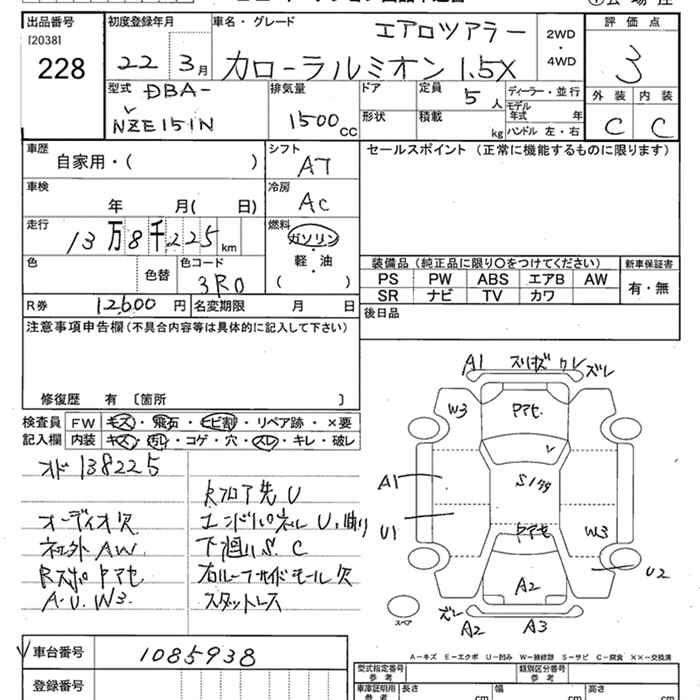 出品番号
[2038]
228
初度登録年月
22年 3月
車名・グレード
エアロツアラー
カローラルミオン 1.5X
2WD
・
4WD
評価点
3
外装 内装
C C
型式
DBA-
NZE151N
排気量
1500cc
ドア
形状
定員 5人
積載 kg
ディーラー・並行
モデル年式 年
ハンドル 左・右
車歴
自家用・( )
シフト
AT
セールスポイント (正常に機能するものに限ります)
車検
年 月( 日)
冷房
AC
走行
13万8千225km
燃料
ガソリン
・
軽・油
・
( )
色
色替
色コード
3R0
装備品 (純正品に限り○をつけてください)
新車保証書
PS PW ABS エアB AW
SR ナビ TV カワ
有・無
R券 12,600円
名変期限 月 日
後日品
注意事項申告欄(不具合内容等は具体的に記入して下さい)
修復歴 有 〔箇所 〕
検査員記入欄
FW キズ・飛石・ヒビ割・リペア跡・×要
内装 キズ・汚れ・コゲ・穴・スレ・キレ・破レ
オド 138225
RフロアU
オーディオ欠
エンドパネルU
ネジ外AW
下廻りS.C
A.U.W3
スタットレス
A1
ズレ
W3
アセ
A1
U1
S1
W3
U2
A2
ズレ
A2
A3
スペア
A-キズ E-エクボ U-凹み W-補修跡 S-サビ C-腐食 ××-交換済
車台番号 1085938
登録番号
型式指定番号
参考
類別区分番号
参考
車庫証明用
参考
長さ cm
幅 cm
高さ cm